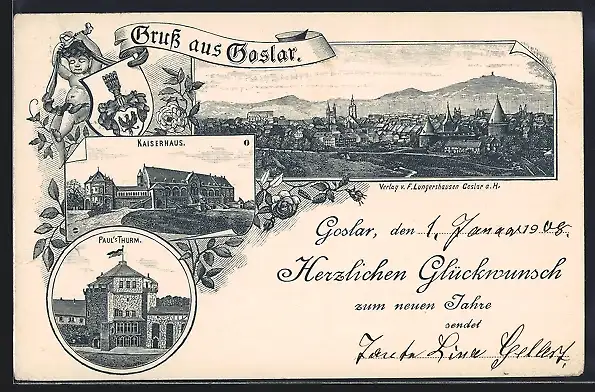 Gruß aus Goslar.
KAISERHAUS.
Verlag v. F. Lungershausen Goslar a. H.
PAUL'S THURM.
Goslar, den 1. Januar 1908.
Herzlichen Glückwunsch
zum neuen Jahre
sendet
Tante Lina